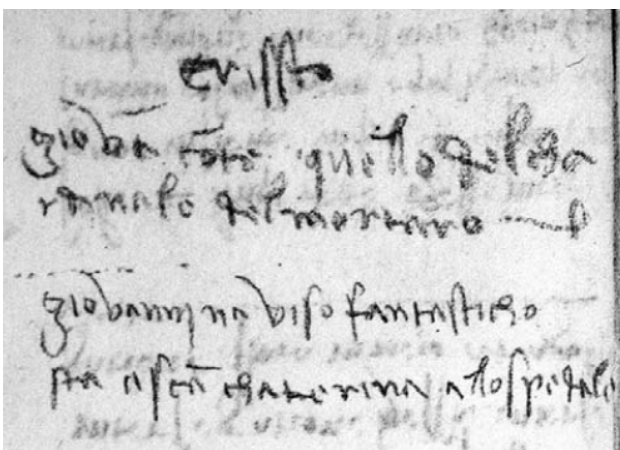 crissto
giovan conte quello del cha
rdinale del mortaro
giovannina viso fantasticho
sta a sca chaterina a lospedale